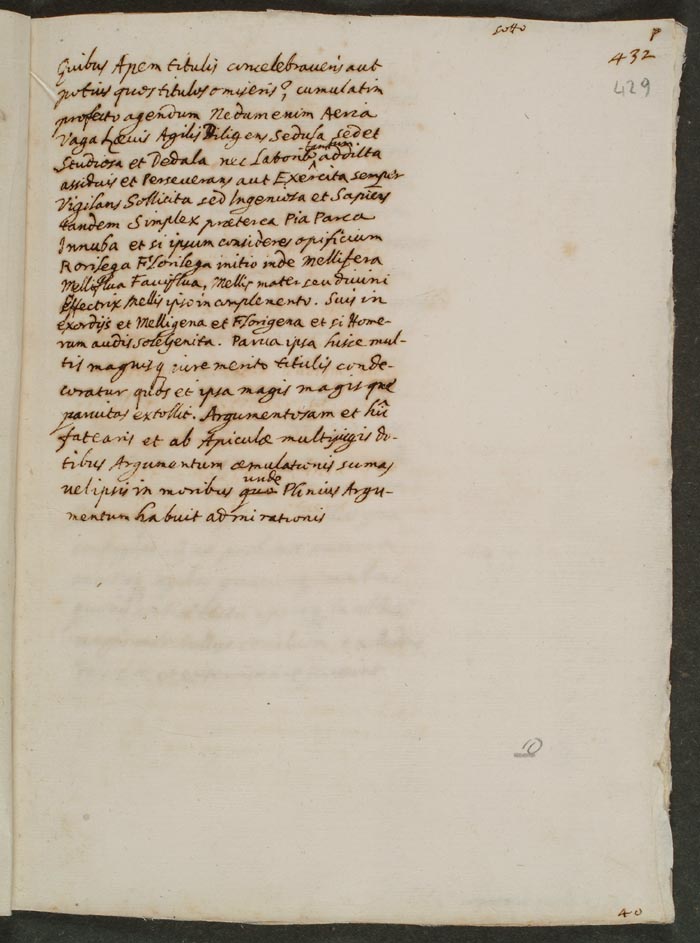 sotto
p
432
429
Quibus Apem titulis concelebraveris aut
potius quos titulos omiseris?, cumulatim
profecto agendum Nedum enim Aeria
Vaga Laevis Agilis Diligens Sedula sed et
Studiosa et Dedala nec Laborib. tantum addicta
assiduis et Perseverans aut Exercita semper
Vigilans Sollicita sed Ingenuosa et Sapiens
tandem Simplex praeterea Pia Parca
Innuba et si ipsum consideres opificium
Rorilega Florilega initio inde Mellifera
Melliflua Faviflua, Mellis mater seu divini
Effectrix Mellis ipso in complemento. Suis in
exordijs et Melligena et Florigena et si Home-
rum audis soligenita. Parva ipsa hisce mul-
tis magnisq iure merito titulis conde-
coratur quos et ipsa magis magisque
parvitas extollit. Argumentosam et hũc
fatearis et ab Apiculae multijugis do-
tibus Argumentum aemulationis sumas
vel ipsis in moribus unde Plinius Argu-
mentum habuit admirationis
10
40